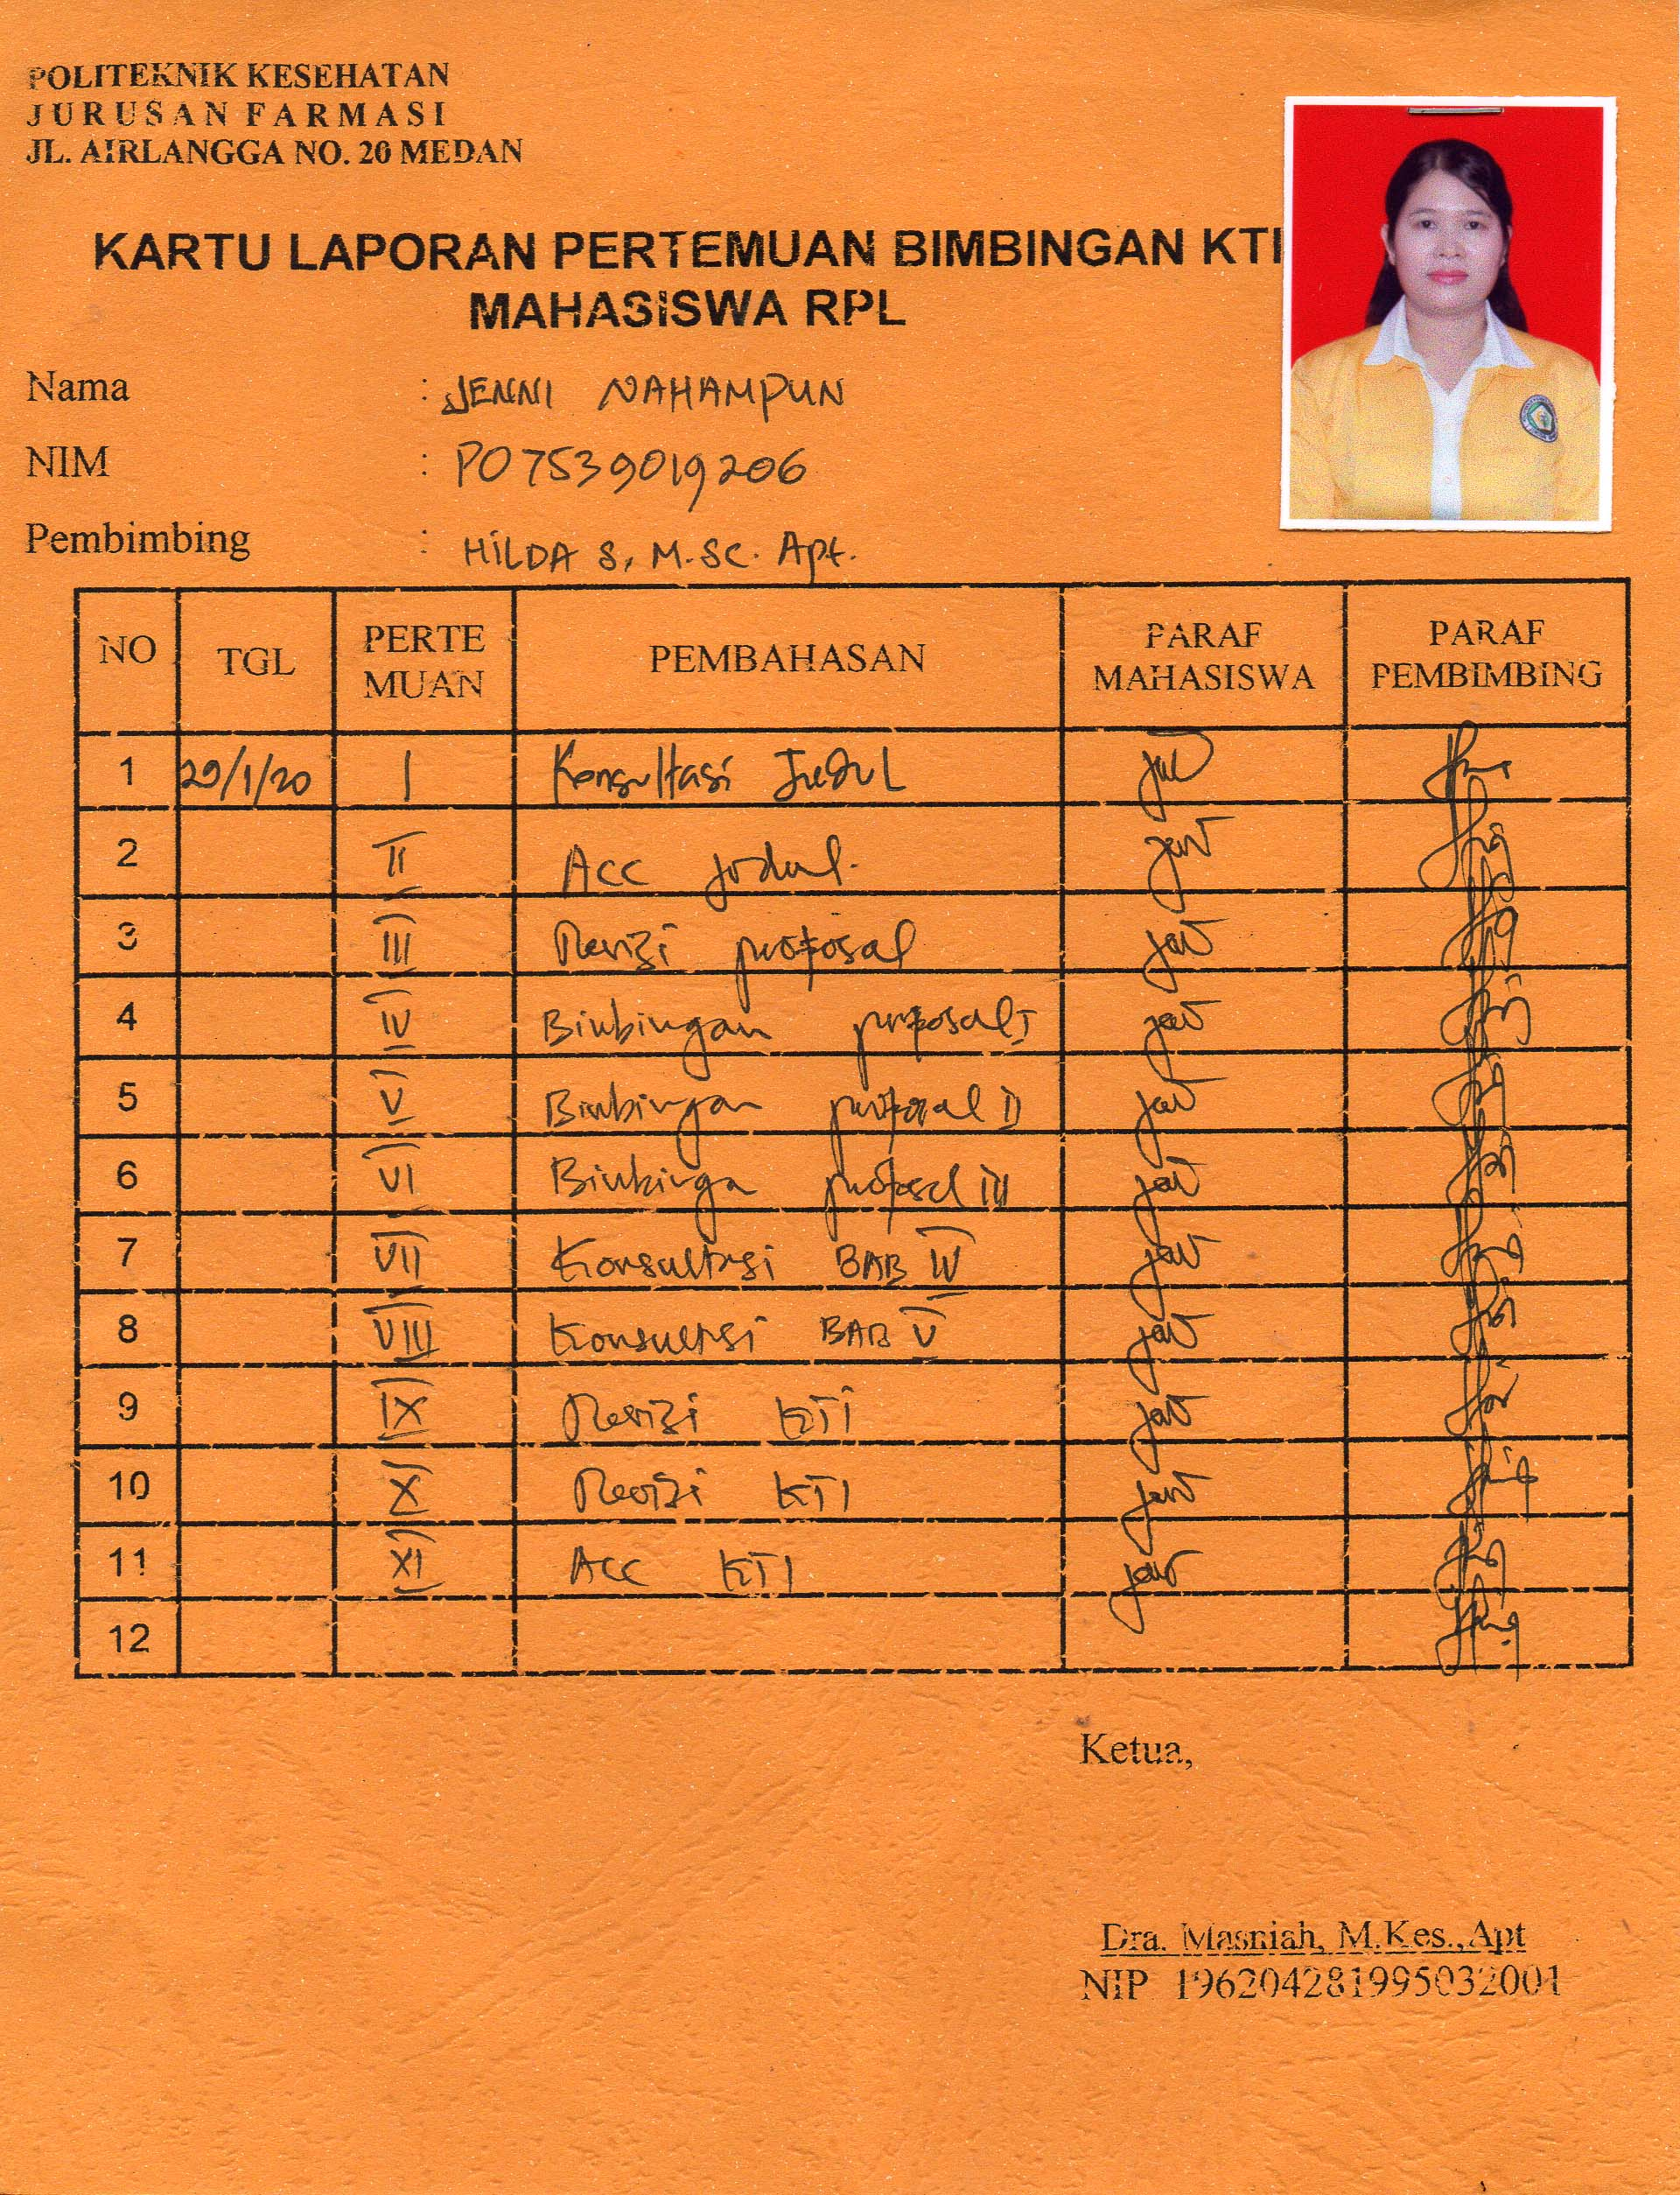 POLITEKNIK KESEHATAN
JURUSAN FARMASI
JL. AIRLANGGA NO. 20 MEDAN
KARTU LAPORAN PERTEMUAN BIMBINGAN KTI
MAHASISWA RPL
Nama : JENNI NAHAMPUN
NIM : PO7539019206
Pembimbing : HILDA S, M.SC. Apt.
NO TGL PERTE MUAN PEMBAHASAN PARAF MAHASISWA PARAF PEMBIMBING
1 29/1/20 I Konsultasi Judul
2 II ACC Judul.
3 III Revisi proposal
4 IV Bimbingan proposal I
5 V Bimbingan proposal II
6 VI Bimbinga proposal III
7 VII Konsultasi BAB IV
8 VIII Konsultasi BAB V
9 IX Revisi KTI
10 X Revisi KTI
11 XI Acc KTI
12
Ketua,
Dra. Masniah, M.Kes.,Apt
NIP 196204281995032001